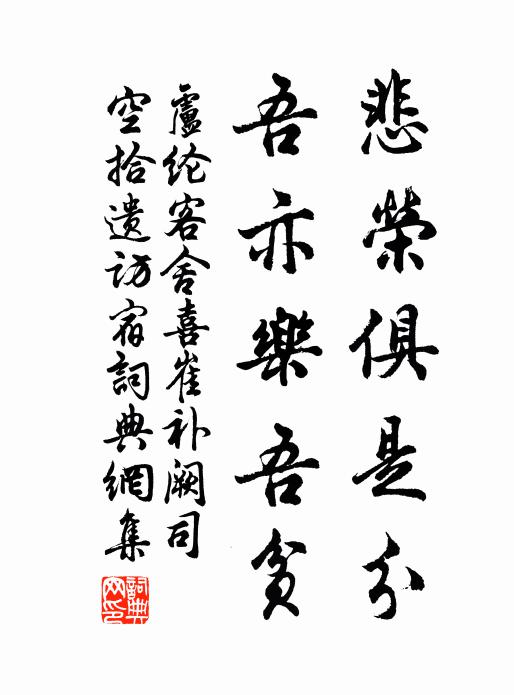 悲榮俱是分
吾亦樂吾貧
盧纶客舍喜崔补阙司
空拾遗访宿詞典網集
詞典
网印